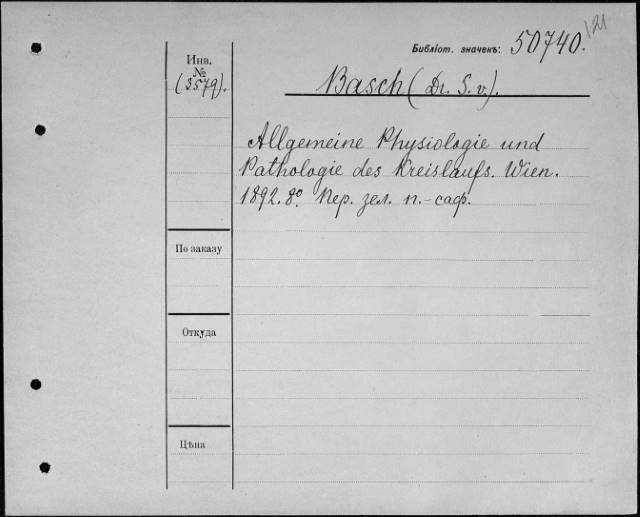 121
Библіот. значекъ: 50740.
Инв.
№
(3579).
Basch (Dr. S. v.).
Allgemeine Physiologie und
Pathologie des Kreislaufs. Wien.
1892. 8º. Пер. зел. п.-саф.
По заказу
Откуда
Цѣна